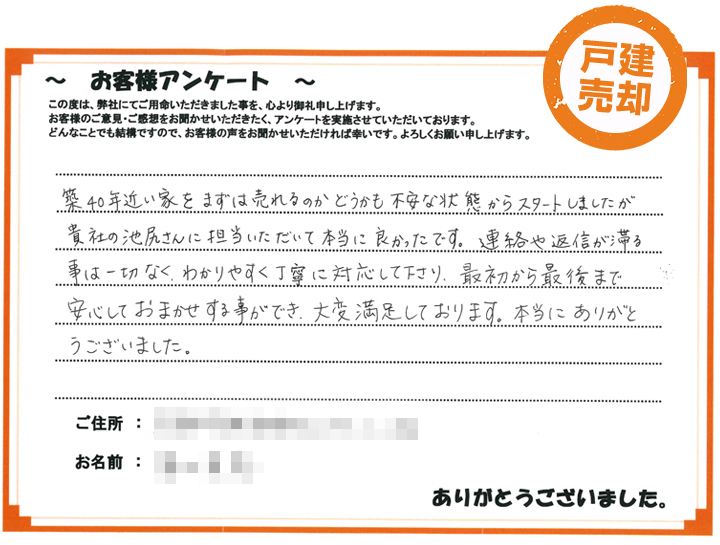 戸建
売却
～ お客様アンケート ～
この度は、弊社にてご用命いただきました事を、心より御礼申し上げます。
お客様のご意見・ご感想をお聞かせいただきたく、アンケートを実施させていただいております。
どんなことでも結構ですので、お客様の声をお聞かせいただければ幸いです。よろしくお願い申し上げます。
築40年近い家をまずは売れるのかどうかも不安な状態からスタートしましたが
貴社の池尻さんに担当いただいて本当に良かったです。連絡や返信が滞る
事は一切なく、わかりやすく丁寧に対応して下さり、最初から最後まで
安心しておまかせする事ができ、大変満足しております。本当にありがと
うございました。
ご住所 ：
お名前 ：
ありがとうございました。